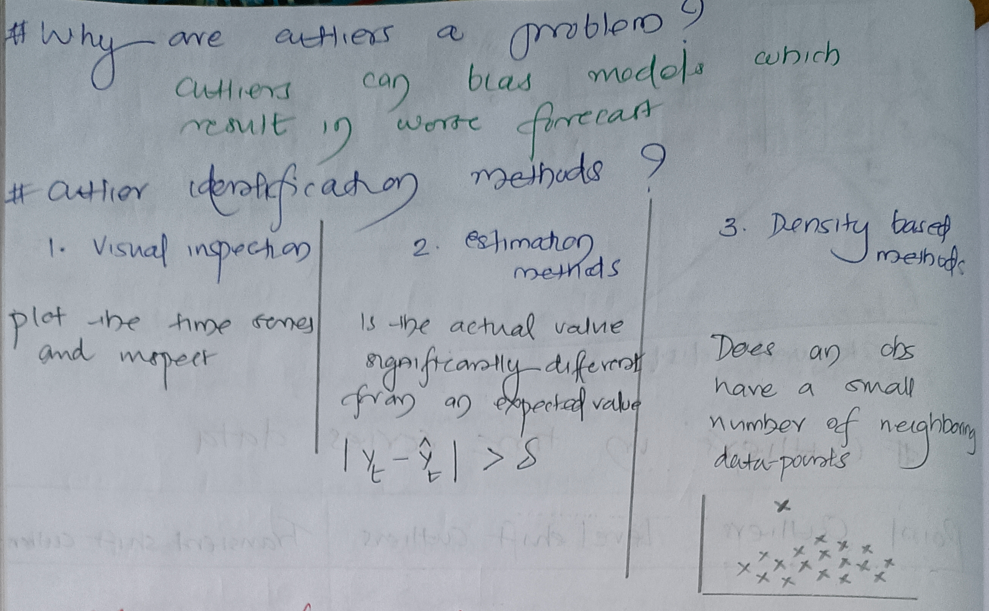 # Why are outliers a problem?
outliers can bias models which
result in worse forecast
# outlier identification methods?
1. Visual inspection
plot the time series
and inspect
2. estimation
methods
Is the actual value
significantly different
from an expected value
|yₜ - ŷₜ| > δ
3. Density based
methods
Does an obs
have a small
number of neighboring
data-points